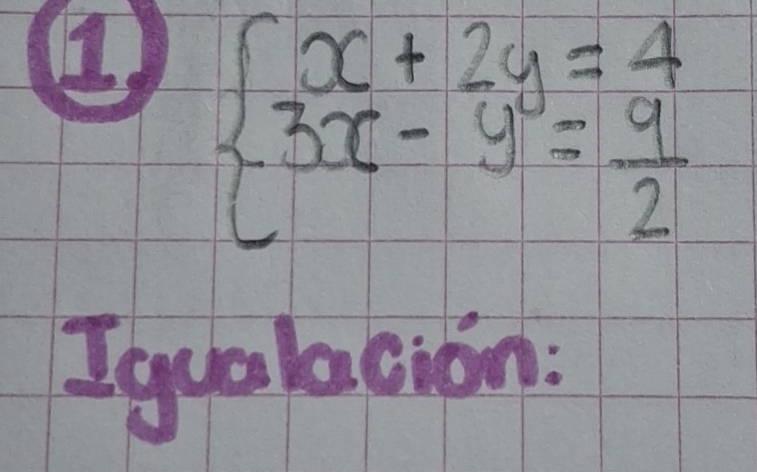 1. x + 2y = 4
3x - y = 9/2
Igualación: